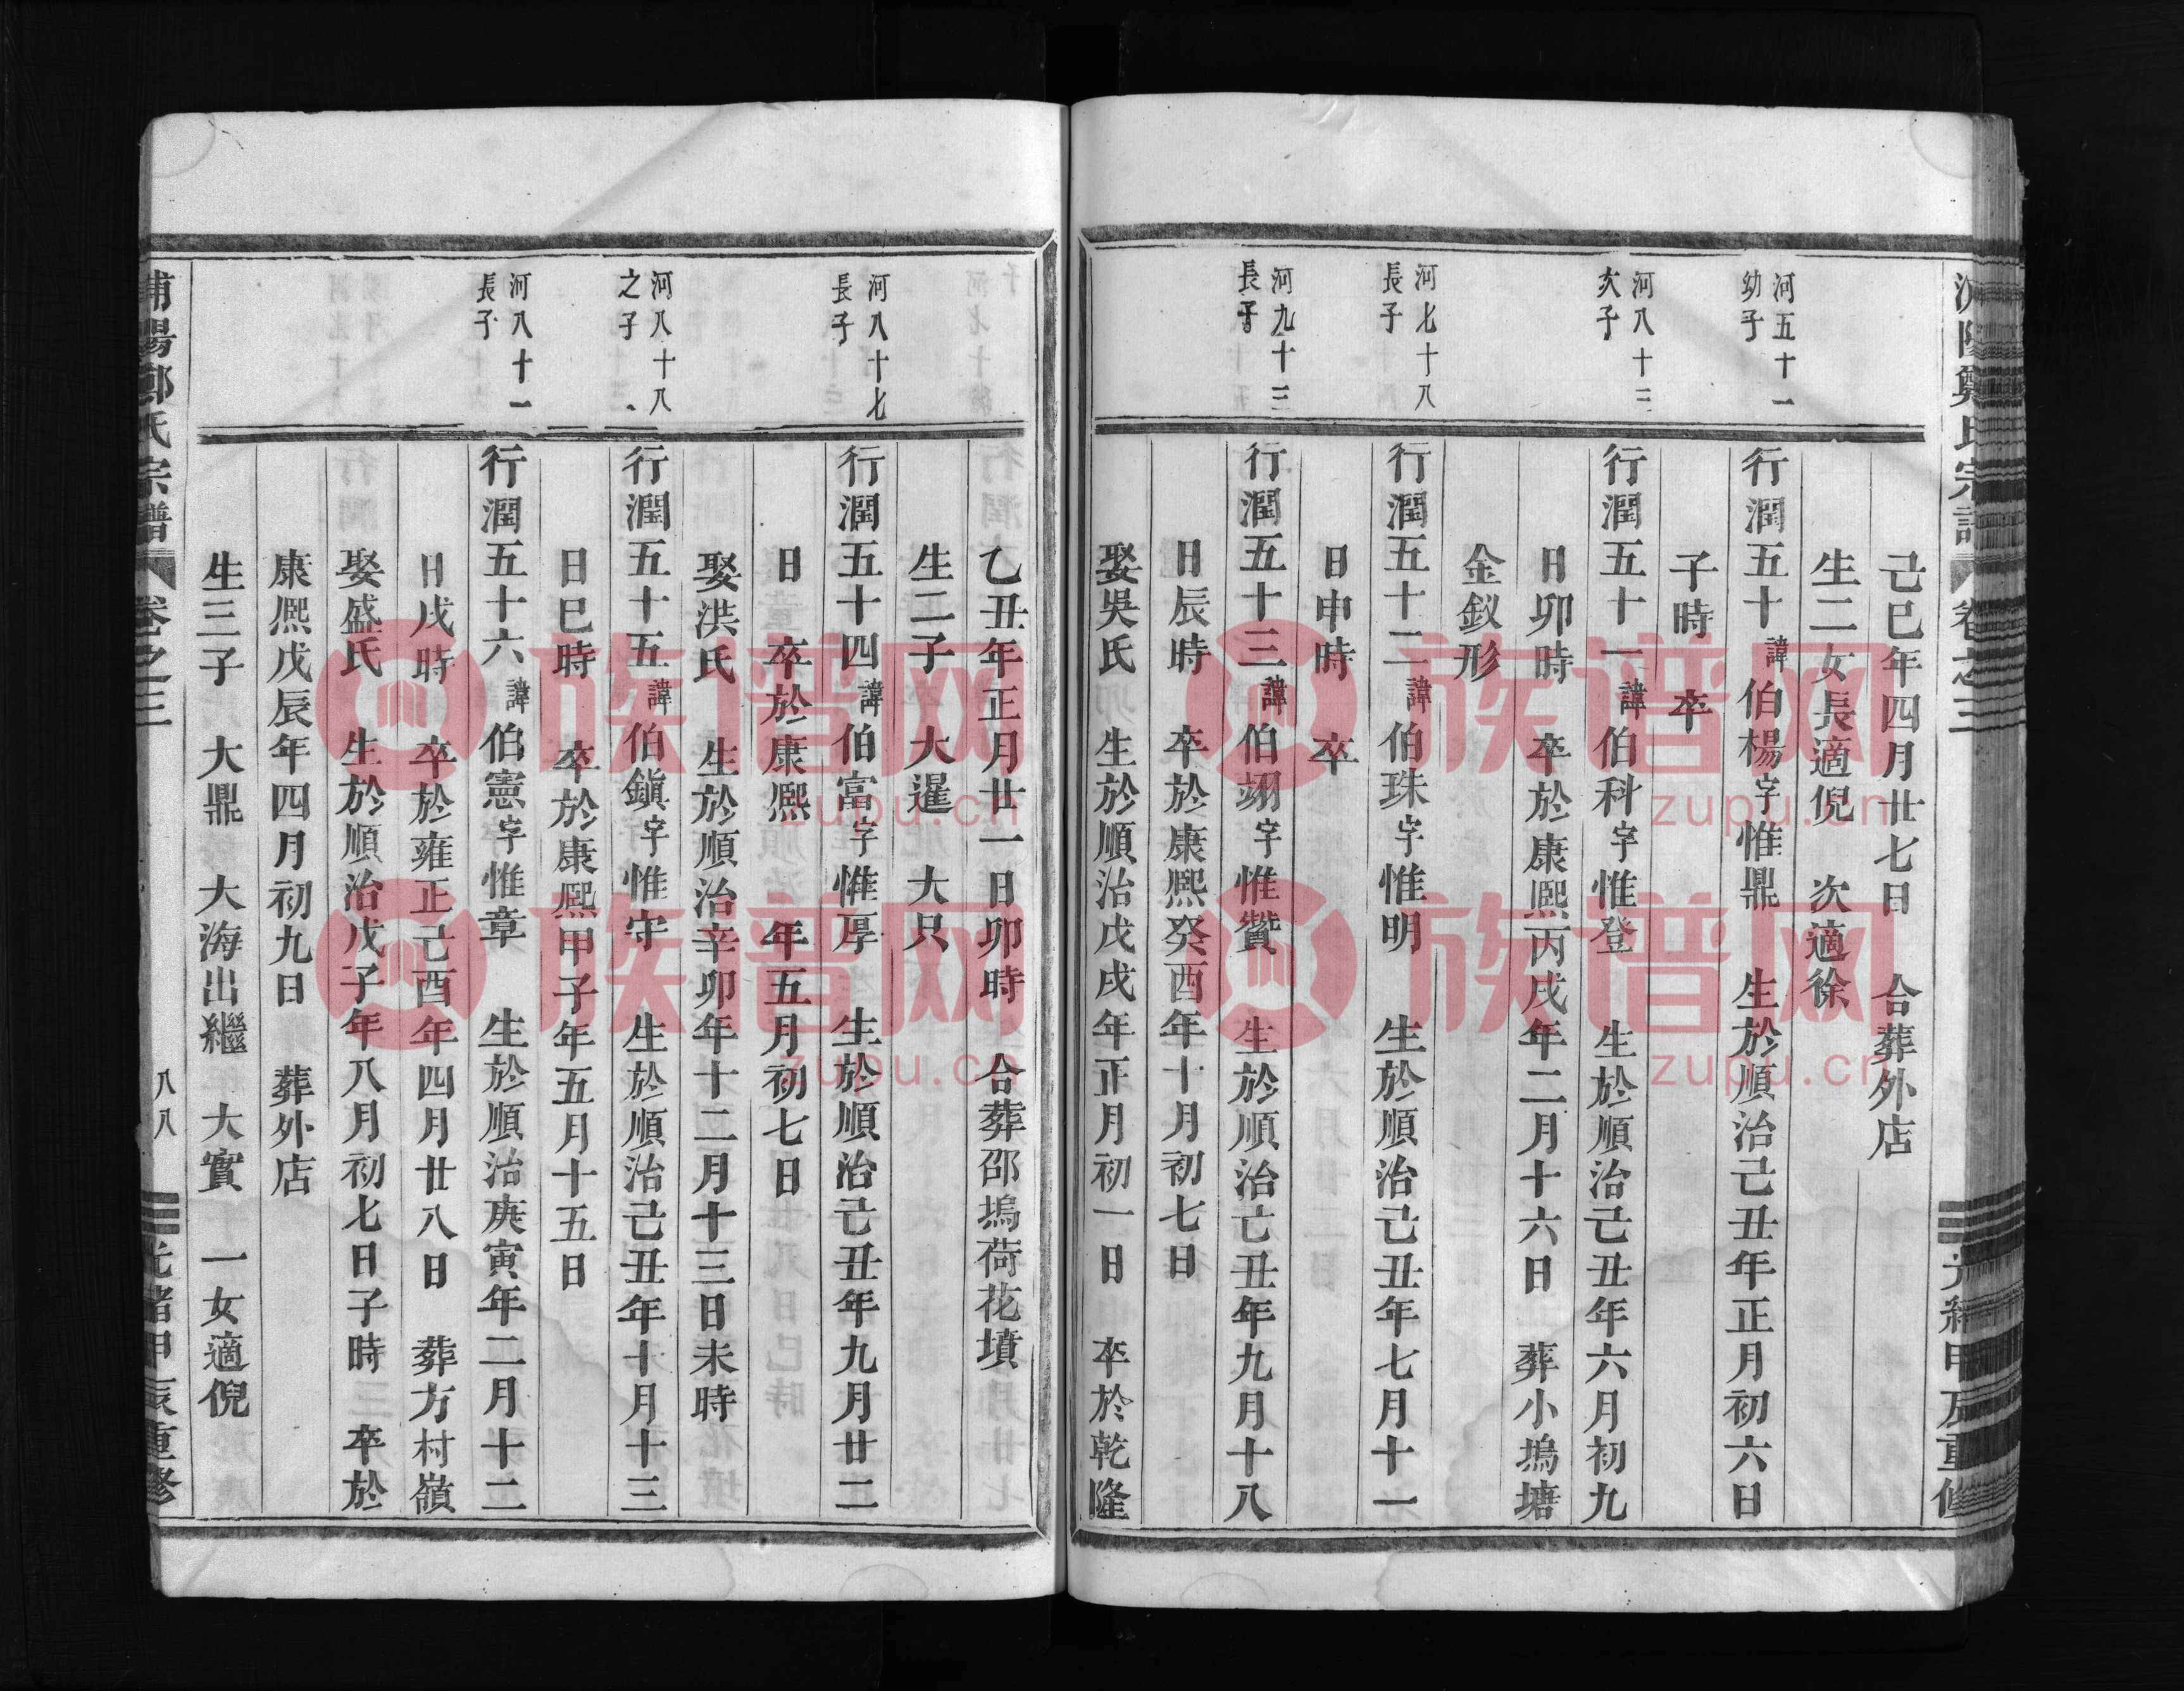 己巳年四月廿七日　合葬外店
生二女長適倪　次適徐
河五十一
幼子
行潤五十諱伯楊字惟鼎　生於順治己丑年正月初六日
子時　卒
河八十三
次子
行潤五十一諱伯科字惟登　生於順治己丑年六月初九
日卯時　卒於康熙丙戌年二月十六日　葬小塢塘
金釵形
河七十八
長子
行潤五十二諱伯珠字惟明　生於順治己丑年七月十一
日申時　卒
河九十三
長子
行潤五十三諱伯翊字惟贊　生於順治己丑年九月十八
日辰時　卒於康熙癸酉年十月初七日
娶吳氏　生於順治戊戌年正月初一日　卒於乾隆
乙丑年正月廿一日卯時　合葬邵塢荷花墳
生二子　大暹　大只
河八十七
長子
行潤五十四諱伯富字惟厚　生於順治己丑年九月廿二
日　卒於康熙　年五月初七日
娶洪氏　生於順治辛卯年十二月十三日未時
河八十八
之子
行潤五十五諱伯鎮字惟守　生於順治己丑年十月十三
日巳時　卒於康熙甲子年五月十五日
河八十一
長子
行潤五十六諱伯憲字惟章　生於順治庚寅年二月十二
日戌時　卒於雍正己酉年四月廿八日　葬方村嶺
娶盛氏　生於順治戊子年八月初七日子時　卒於
康熙戊辰年四月初九日　葬外店
生三子　大鼎　大海出繼　大實　一女適倪
浦陽鄭氏宗譜　卷之三　八八　光緒甲辰重修
族谱网
zupu.cn
族谱网
zupu.cn
族谱网
zupu.cn
族谱网
zupu.cn